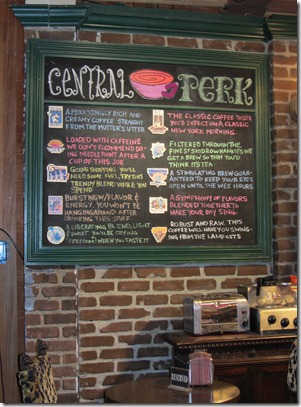 CENTRAL PERK
A MOO-VINGLY RICH AND
CREAMY COFFEE STRAIGHT
FROM THE MUTTER'S UTTER.
LOADED WITH CAFFEINE
WE DON'T RECOMMEND DO-
ING NEEDLE POINT AFTER A
CUP OF THIS JOE
GOING SHOPPING? YOU'LL
NEED SOME FUEL, TRY THIS
TRENDY BLEND WHILE YOU
SPEND
BURSTING W/ FLAVOR &
ENERGY. YOU WON'T BE
HANGING AROUND AFTER
DRINKING THIS STUFF
A LIBERATING BLEND, LIGHT
SWEET YOU'LL BE CRYING
FREEDOM! WHEN YOU TASTE IT.
THE CLASSIC COFFEE TASTE
YOU'D EXPECT ON A CLASSIC
NEW YORK MORNING.
FILTERED THROUGH THE
FINEST SOD ROW WANTS WE
GET A BREW SO THIN YOU'D
THINK ITS TEA
A STIMULATING BREW GUAR-
ANTEED TO KEEP YOUR EYES
OPEN UNTIL THE WEE HOURS
A SYMPHONY OF FLAVORS
BLENDED TOGETHER TO
MAKE YOUR DAY SING.
ROBUST AND RAW. THIS
COFFEE WILL HAVE YOU SWING-
ING FROM THE LAMPOSTS
RESERVED